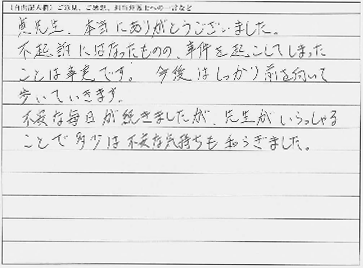 (自由記入欄) ご意見、ご感想、担当弁護士への一言など
先生、本当にありがとうございました。
不起訴にはなったものの、事件を起こしてしまった
ことは事実です。今後はしっかり前を向いて
歩いていきます。
不安な毎日が続きましたが、先生がいらっしゃる
ことで多少は不安な気持ちも和らぎました。